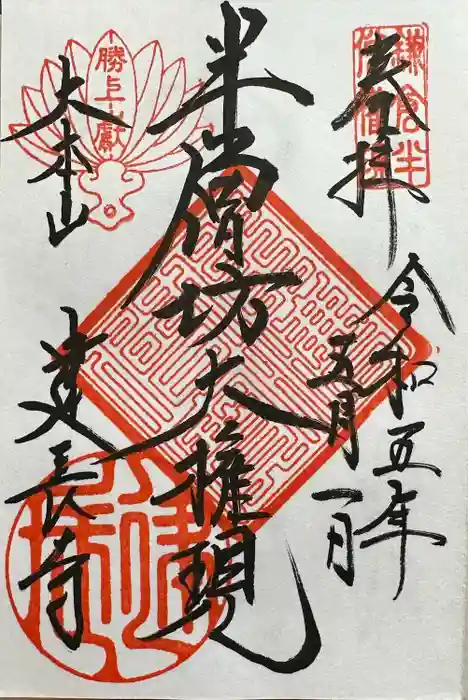 奉拝
令和五年
五月一日
半僧坊大権現
大本山
建長寺
勝上嶽
鎌倉半